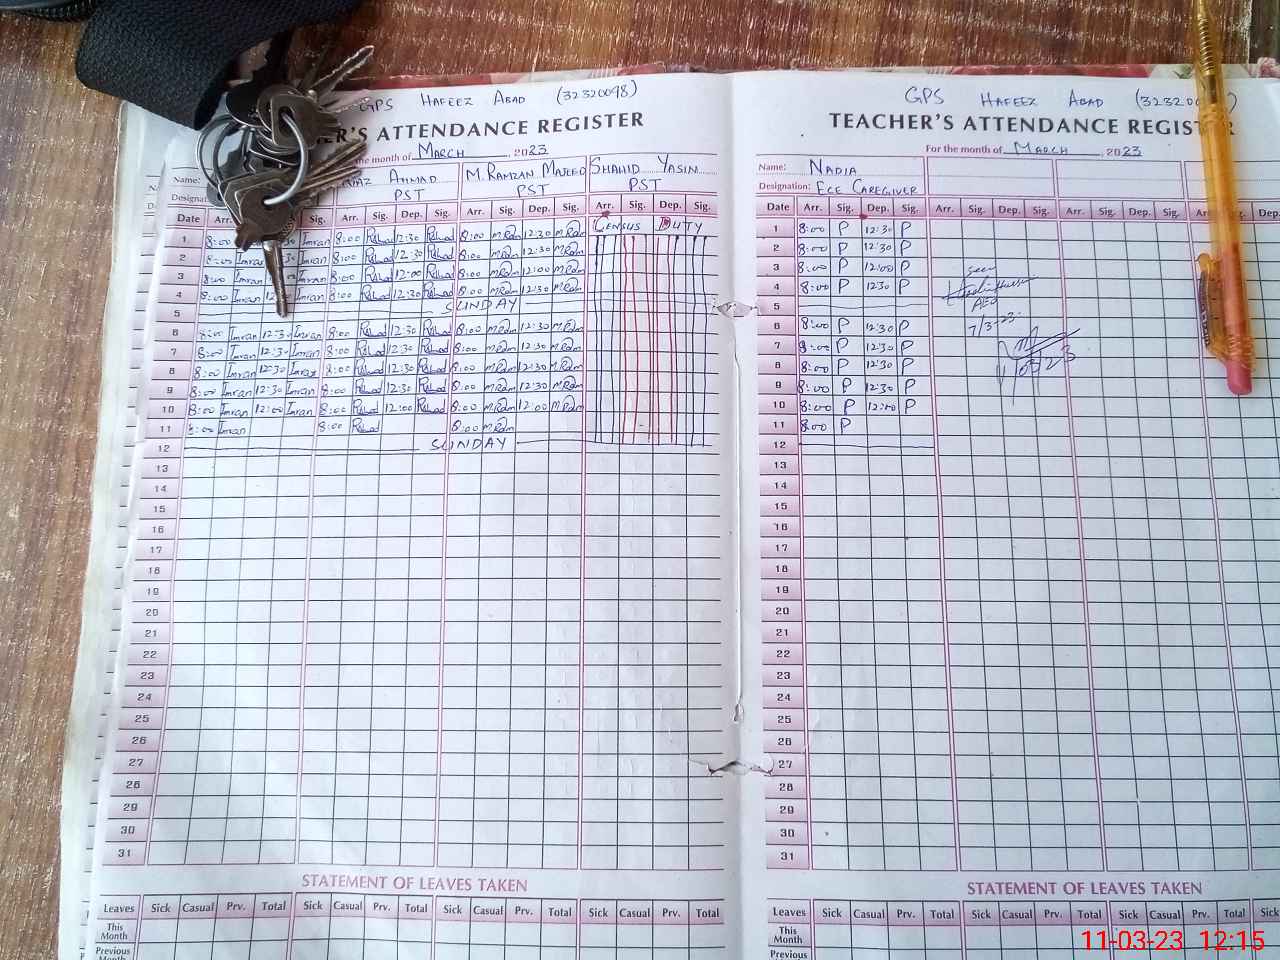 GPS HAFEEZ ABAD (32320098)
ER'S ATTENDANCE REGISTER
the month of MARCH, 2023
Name: AHMAD M. RAMZAN MAJEED SHAHID YASIN
PST PST PST
Date Arr. Arr. Sig. Dep. Sig. Arr. Sig. Dep. Sig. Arr. Sig. Dep. Sig.
CENSUS DUTY
1 8:00 Imran 8:00 12:30 8:00 MRam 12:30 MRam
2 8:00 Imran Imran 8:00 12:30 8:00 MRam 12:30 MRam
3 8:00 Imran Imran 8:00 12:00 8:00 MRam 12:00 MRam
4 8:00 Imran Imran 8:00 12:30 8:00 MRam 12:30 MRam
5 SUNDAY
6 8:00 Imran 12:30 Imran 8:00 12:30 8:00 MRam 12:30 MRam
7 8:00 Imran 12:30 Imran 8:00 12:30 8:00 MRam 12:30 MRam
8 8:00 Imran 12:30 Imran 8:00 12:30 8:00 MRam 12:30 MRam
9 8:00 Imran 12:30 Imran 8:00 12:30 8:00 MRam 12:30 MRam
10 8:00 Imran 12:00 Imran 8:00 12:00 8:00 MRam 12:00 MRam
11 8:00 Imran 8:00 8:00 MRam
12 SUNDAY
13
14
15
16
17
18
19
20
21
22
23
24
25
26
27
28
29
30
31
STATEMENT OF LEAVES TAKEN
Leaves Sick Casual Prv. Total Sick Casual Prv. Total Sick Casual Prv. Total
This Month
Previous Month
GPS HAFEEZ ABAD
TEACHER'S ATTENDANCE REGISTER
For the month of MARCH, 2023
Name: NADIA
Designation: ECE CAREGIVER
Date Arr. Sig. Dep. Sig. Arr. Sig. Dep. Sig. Arr. Sig. Dep. Sig. Arr. Dep.
1 8:00 P 12:30 P
2 8:00 P 12:30 P
3 8:00 P 12:00 P
4 8:00 P 1230 P
5
6 8:00 P 12:30 P
7 8:00 P 12:30 P
8 8:00 P 12:30 P
9 8:00 P 12:30 P
10 8:00 P 12:00 P
11 8:00 P
12
seen
AEO
7/3-23
13
14
15
16
17
18
19
20
21
22
23
24
25
26
27
28
29
30
31
STATEMENT OF LEAVES TAKEN
Leaves Sick Casual Prv. Total Sick Casual Prv. Total Sick Casual Prv. Total Sick
This Month
Previous
11-03-23 12:15